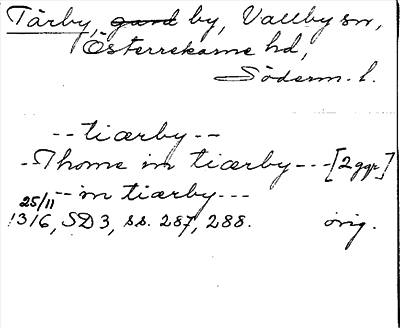 Tärby, gård by, Vallby sn,
Österrekarne hd,
Söderm. l.
-- tiærby --
- Thome in tiærby --- [2 ggr]
-- in tiærby ---
25/11
1316, SD 3, ss. 287, 288. orig.